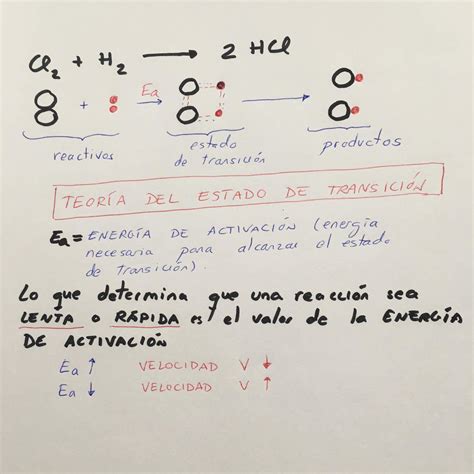 Cl₂ + H₂ ⟶ 2 HCl
+ Ea
reactivos estado de transición productos
TEORÍA DEL ESTADO DE TRANSICIÓN
Ea = ENERGÍA DE ACTIVACIÓN (energía
necesaria para alcanzar el estado
de transición).
Lo que determina que una reacción sea
LENTA o RÁPIDA es el valor de la ENERGÍA
DE ACTIVACIÓN
Ea ↑ VELOCIDAD V ↓
Ea ↓ VELOCIDAD V ↑